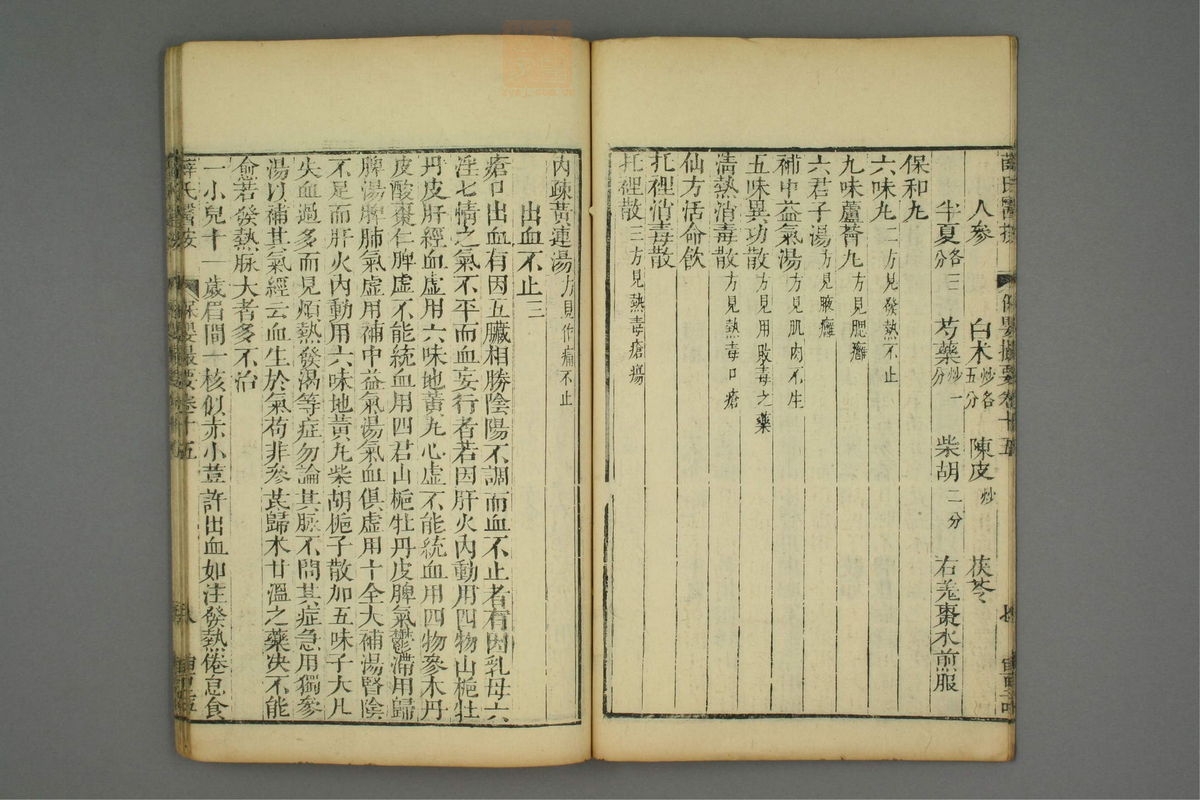 人參　白朮炒各五分　陳皮炒　茯苓
半夏各二分　芍藥炒一分　柴胡二分　右羗棗水煎服
保和九
六味九二方見發熱不止
九味蘆薈九方見腮癰
六君子湯方見腋癰
補中益氣湯方見肌肉不生
五味異功散方見用敗毒之藥
清熱消毒散方見熱毒口瘡
仙方活命飲
托裡消毒散
托裡散三方見熱毒瘡瘍
內疎黃連湯方見作痛不止
出血不止三
瘡口出血有因五臟相勝陰陽不調而血不止者有因乳母六
淫七情之氣不平而血妄行者若因肝火內動用四物山梔牡
丹皮肝經血虛用六味地黃九心虛不能統血用四物參朮丹
皮酸棗仁脾虛不能統血用四君山梔牡丹皮脾氣鬱滯用歸
脾湯脾肺氣虛用補中益氣湯氣血俱虛用十全大補湯腎陰
不足而肝火內動用六味地黃九柴胡梔子散加五味子大凡
失血過多而見煩熱發渴等症勿論其脉不問其症急用獨參
湯以補其氣經云血生於氣苟非參芪歸朮甘溫之藥决不能
愈若發熱脉大者多不治
一小兒十一歲眉間一核似赤小荳許出血如注發熱倦怠食
薛氏醫案　保嬰撮要卷十五　八